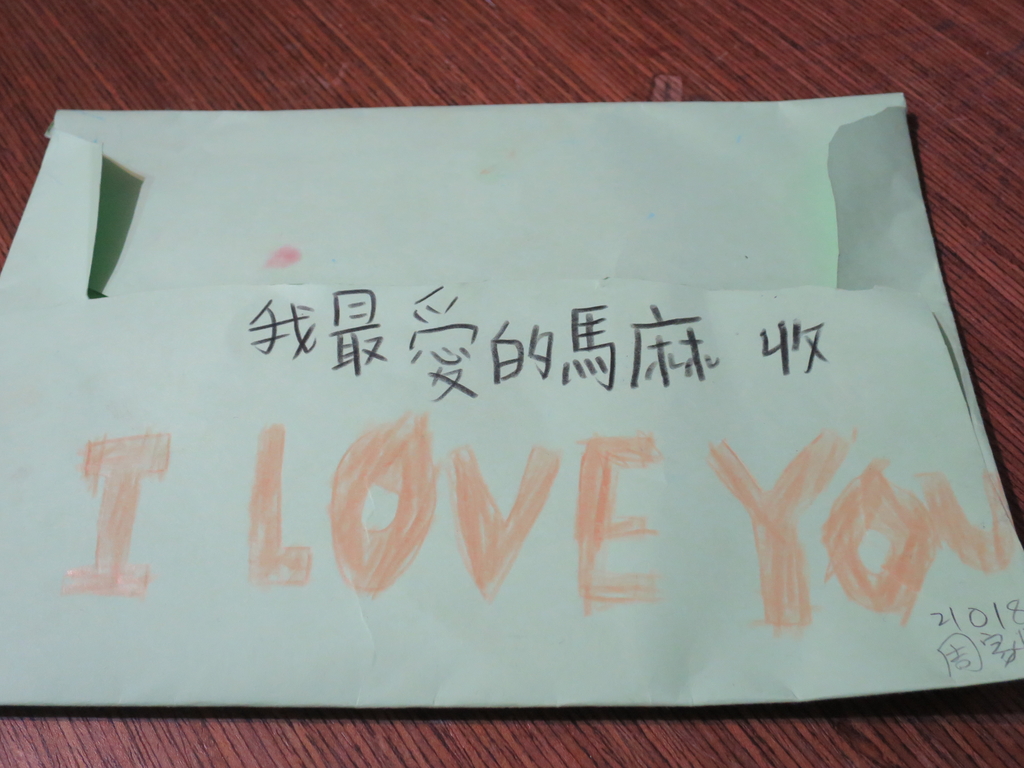 我最愛的馬麻 收
I LOVE YOU
21018
周